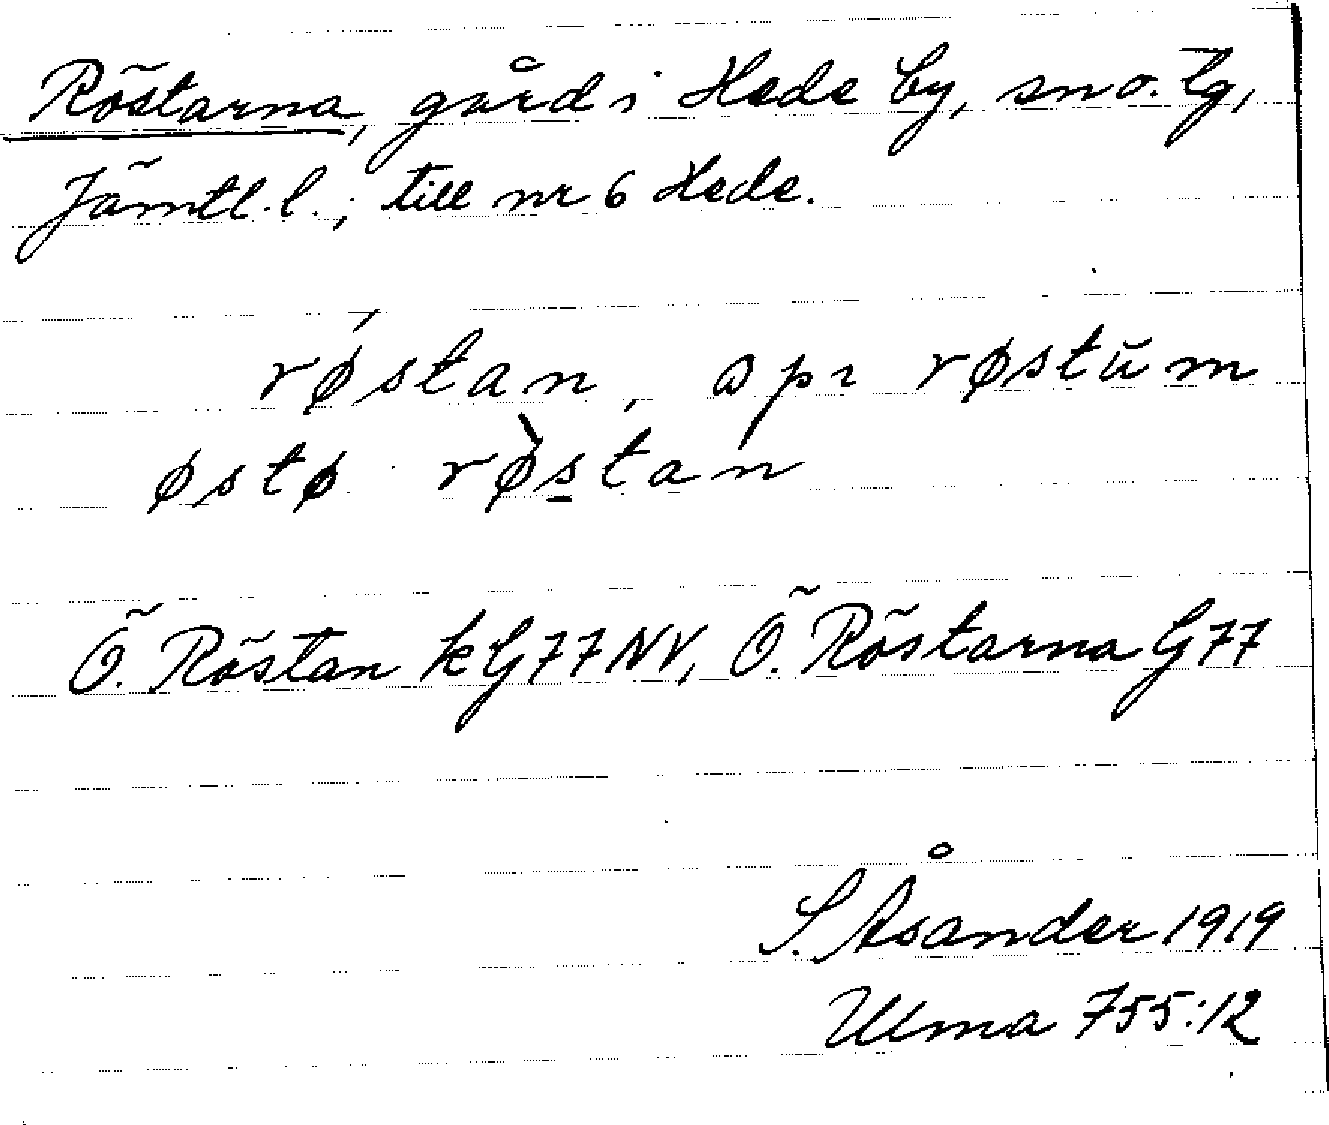 Röstarna, gård i Hede by, sn o. tg,
Jämtl. l.; till nr 6 Hede.
røstan, apr røstŭm
østø røstan
Ö. Röstan kG77NV, Ö. Röstarna G77
S. Åsander 1919
Ulma 755:12